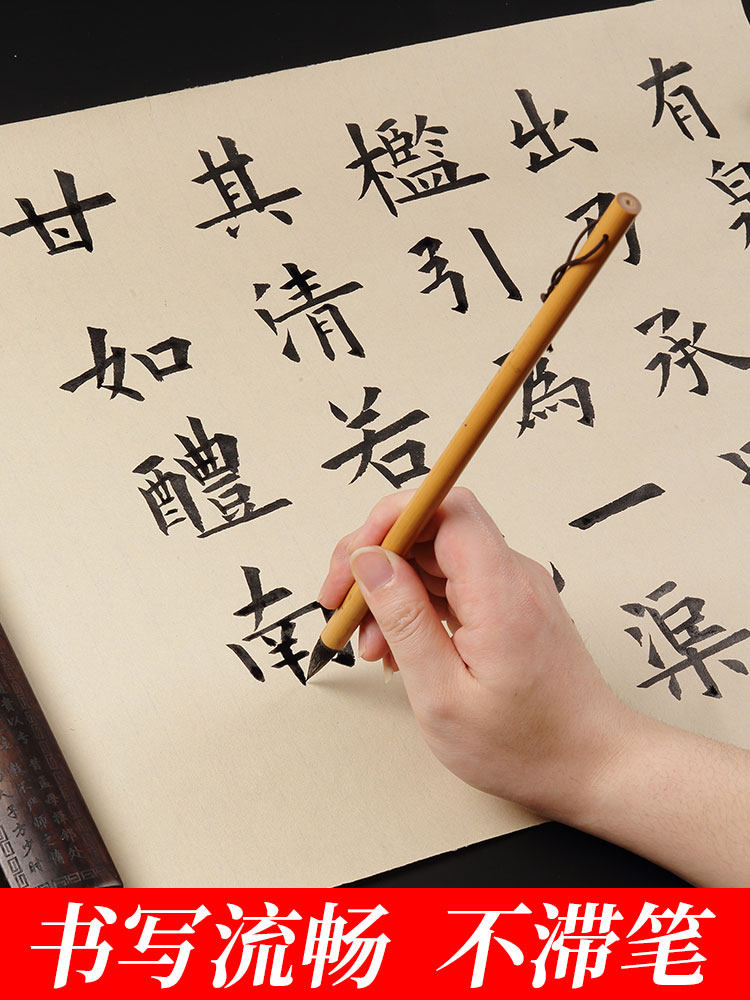 有泉
出乃承
檻引為一渠
其清若
甘如醴南
书写流畅 不滞笔